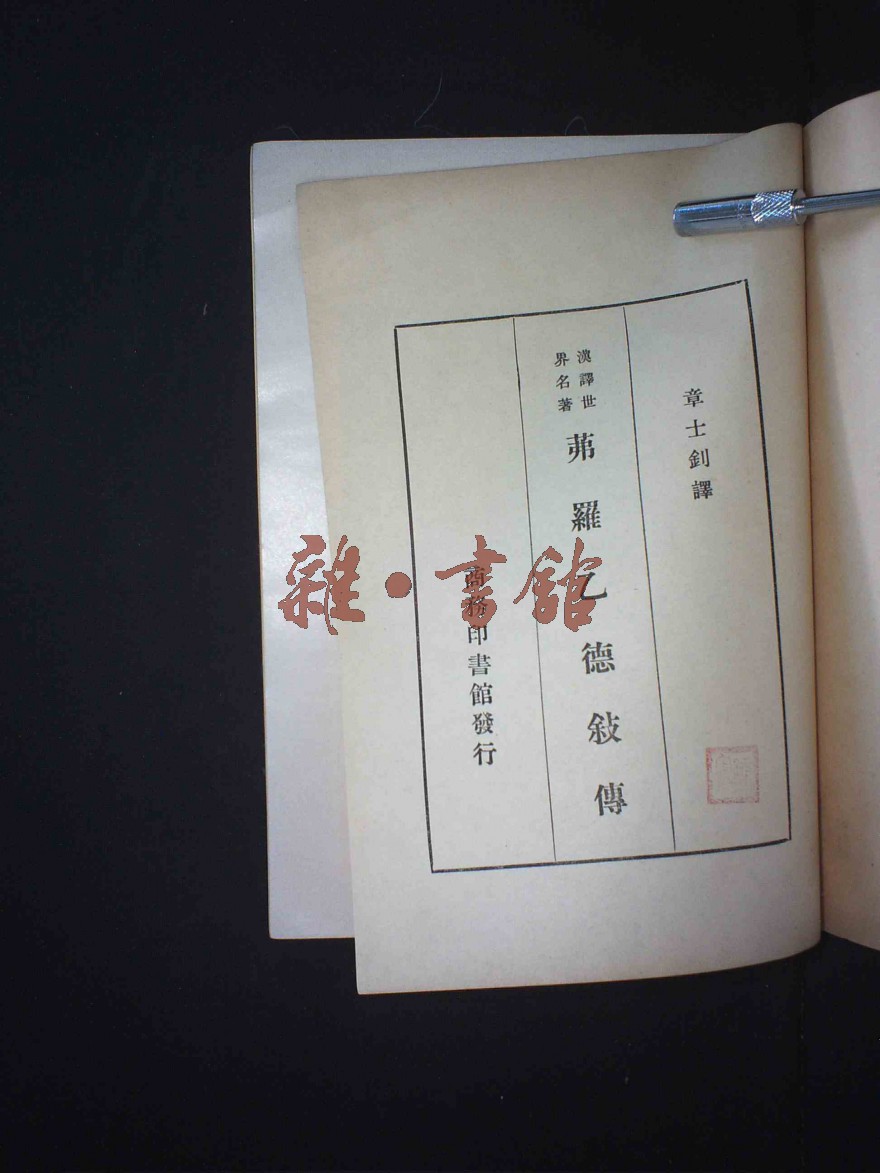 章士釗譯
漢譯世
界名著
茀羅乙德敍傳
商務印書館發行
雜·書館